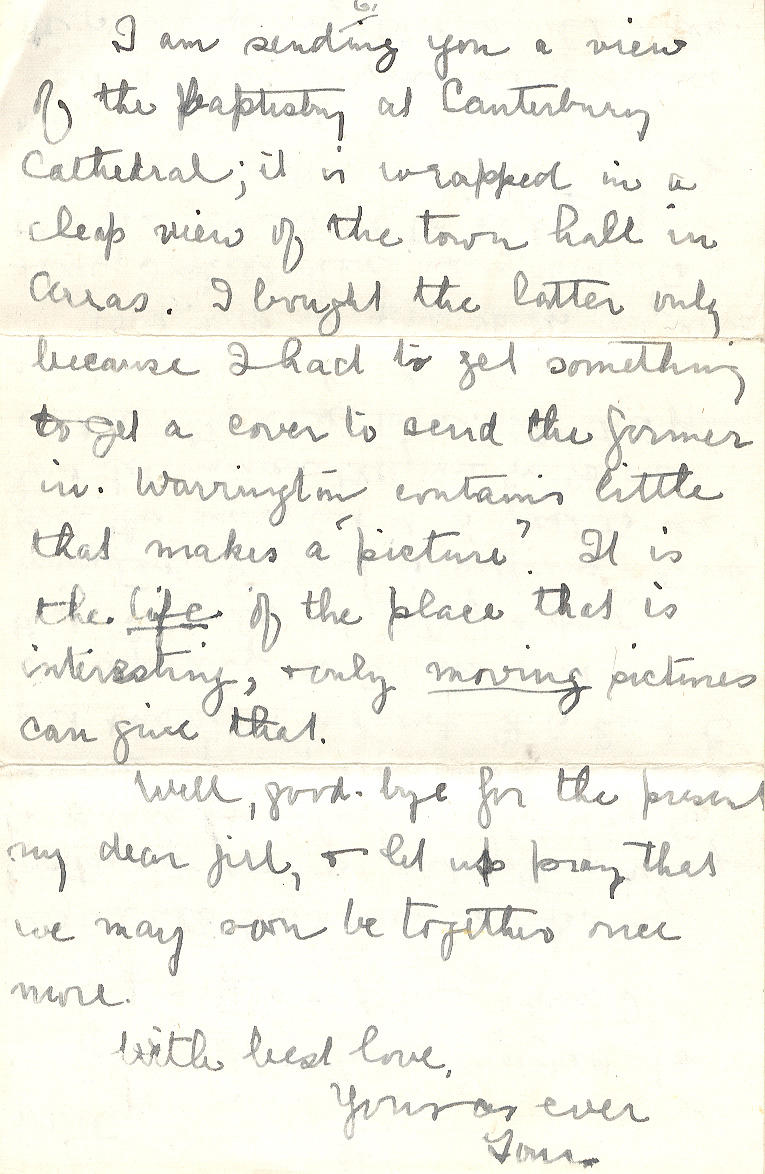 6.
I am sending you a view
of the Baptistry at Canterbury
Cathedral; it is wrapped in a
cheap view of the town hall in
Arras. I bought the latter only
because I had to get something
to get a cover to send the former
in. Warrington contains little
that makes a "picture". It is
the life of the place that is
interesting, + only moving pictures
can give that.
Well, good-bye for the present
my dear girl, + let us pray that
we may soon be together once
more.
With best love,
Yours as ever
Tom.